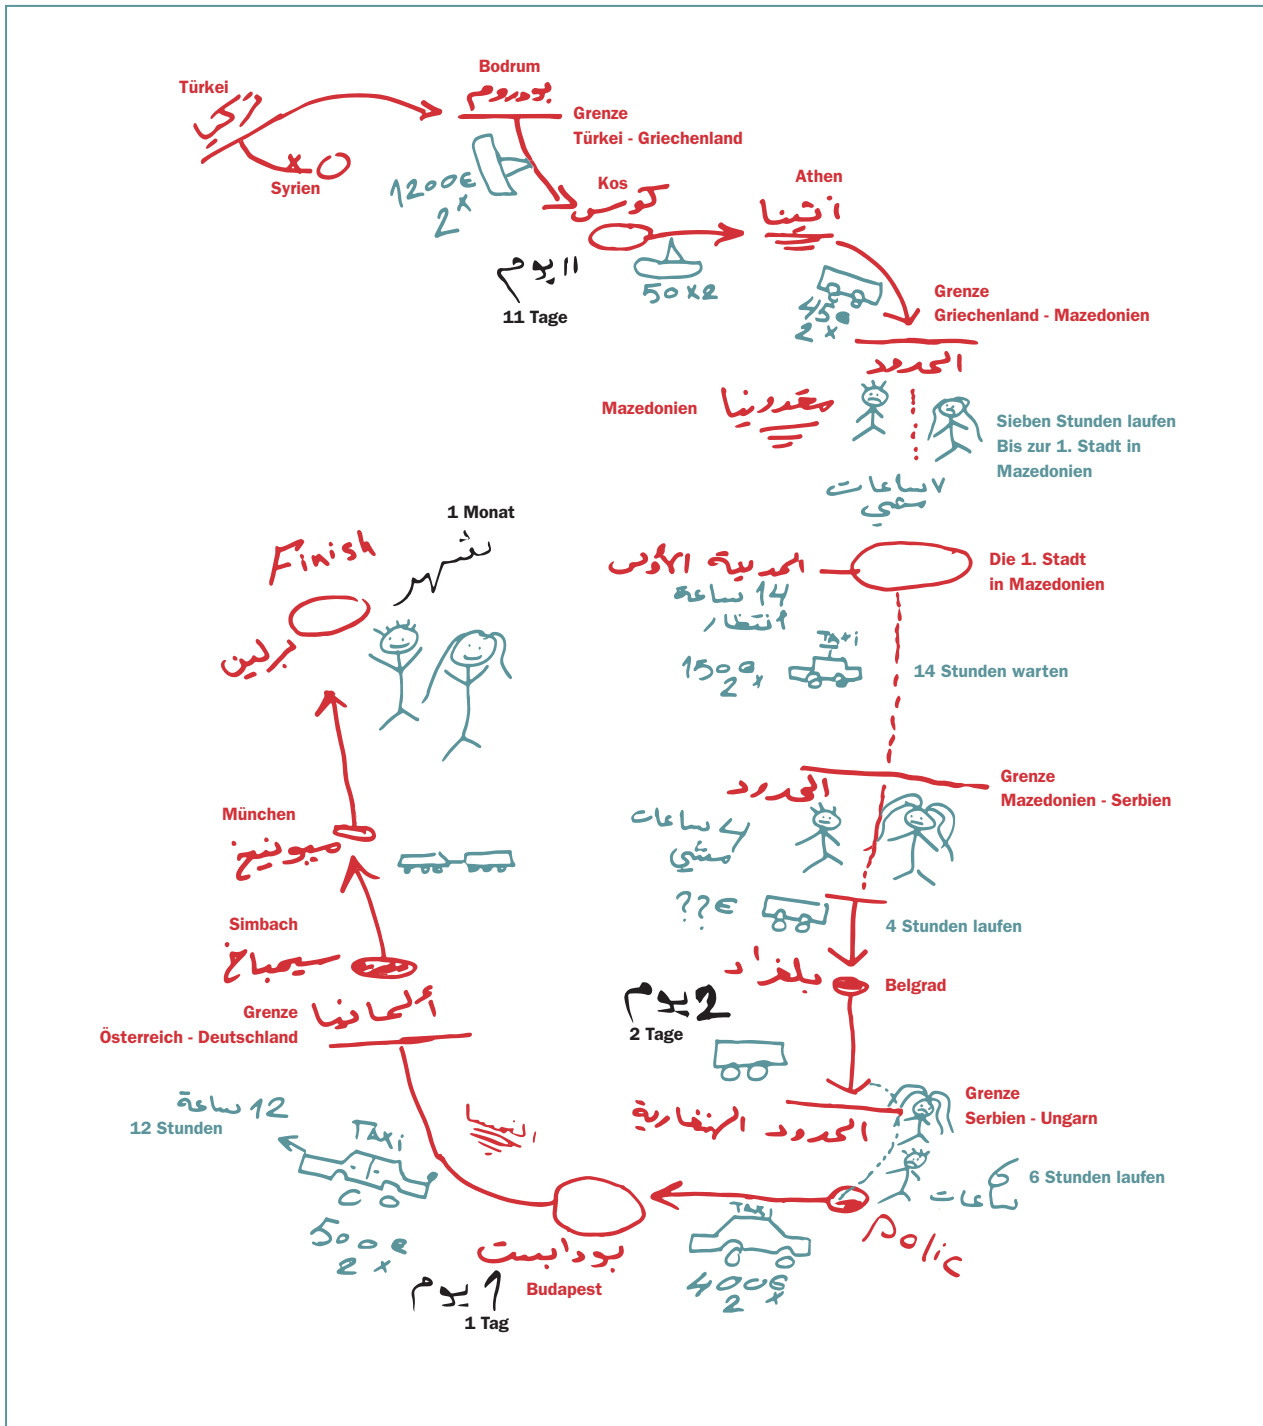 Türkei
تركيا
Syrien
Bodrum
بودروم
Grenze
Türkei - Griechenland
1200€
2x
Kos
كوس
11 يوم
11 Tage
50x2
Athen
أثينا
45€
2x
Grenze
Griechenland - Mazedonien
الحدود
Mazedonien
مقدونيا
Sieben Stunden laufen
Bis zur 1. Stadt in
Mazedonien
٧ ساعات
مشي
المدينة الأولى
Die 1. Stadt
in Mazedonien
14 ساعة
انتظار
TAXi
150€
2x
14 Stunden warten
Grenze
Mazedonien - Serbien
الحدود
4 ساعات
مشي
??€
4 Stunden laufen
بلغراد
Belgrad
2 يوم
2 Tage
Grenze
Serbien - Ungarn
الحدود الهنغارية
6 ساعات
6 Stunden laufen
Polic
TAXi
400€
2x
بودابست
Budapest
1 يوم
1 Tag
النمسا
12 ساعة
12 Stunden
TAXi
500€
2x
Grenze
Österreich - Deutschland
ألمانيا
Simbach
سيمباخ
München
ميونيخ
برلين
Finish
1 Monat
شهر